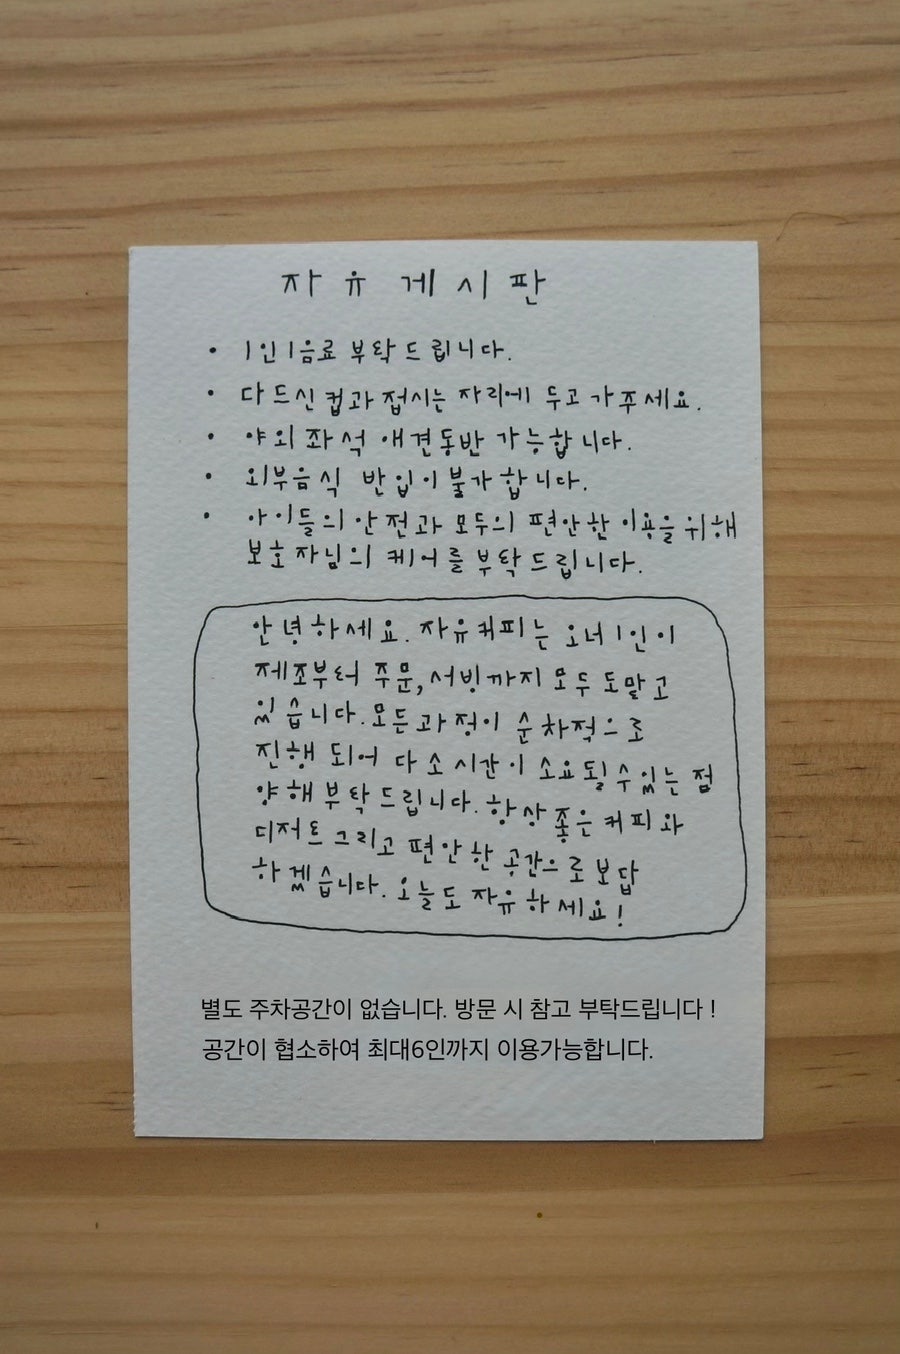 자유 게시판
• 1인 1음료 부탁드립니다.
• 다 드신 컵과 접시는 자리에 두고 가주세요.
• 야외 좌석 애견동반 가능합니다.
• 외부음식 반입이 불가합니다.
• 아이들의 안전과 모두의 편안한 이용을 위해
보호자님의 케어를 부탁드립니다.
안녕하세요. 자유커피는 오너 1인이
제조부터 주문, 서빙까지 모두 도맡고
있습니다. 모든 과정이 순차적으로
진행 되어 다소 시간이 소요될 수 있는 점
양해 부탁드립니다. 항상 좋은 커피와
디저트 그리고 편안한 공간으로 보답
하겠습니다. 오늘도 자유하세요!
별도 주차공간이 없습니다. 방문 시 참고 부탁드립니다 !
공간이 협소하여 최대6인까지 이용가능합니다.